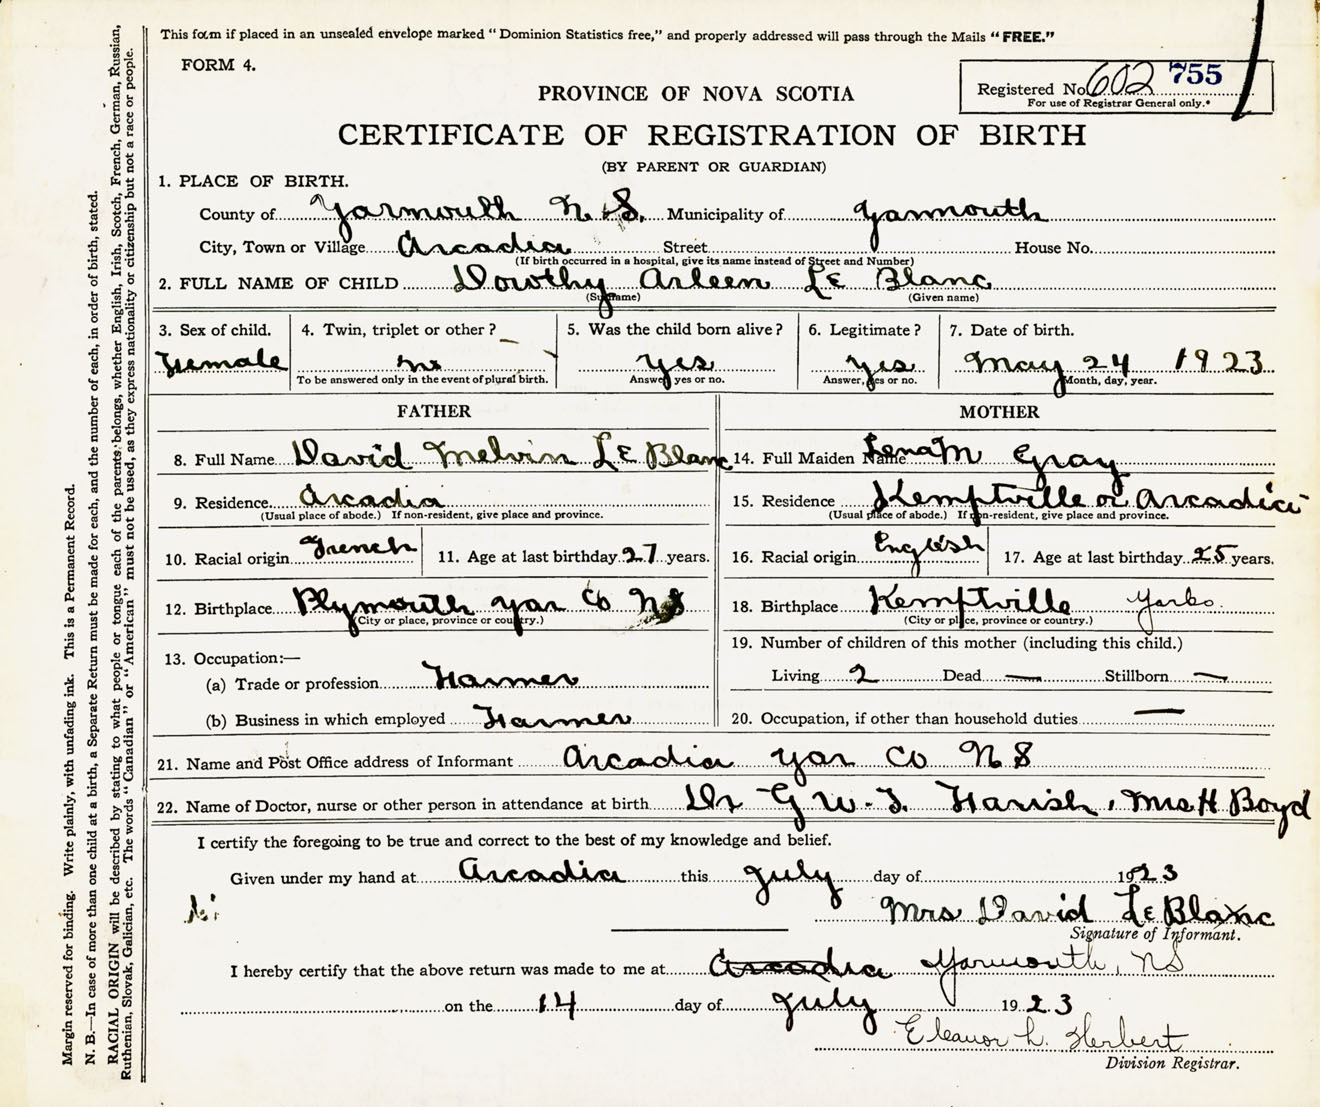 This form if placed in an unsealed envelope marked "Dominion Statistics free," and properly addressed will pass through the Mails "FREE."
FORM 4.
Registered No. 602 755
For use of Registrar General only.*
PROVINCE OF NOVA SCOTIA
CERTIFICATE OF REGISTRATION OF BIRTH
(BY PARENT OR GUARDIAN)
1. PLACE OF BIRTH.
County of Yarmouth N.S. Municipality of Yarmouth
City, Town or Village Arcadia Street House No.
(If birth occurred in a hospital, give its name instead of Street and Number)
2. FULL NAME OF CHILD Dorothy Arleen Le Blanc
(Surname) (Given name)
3. Sex of child. 4. Twin, triplet or other? 5. Was the child born alive? 6. Legitimate? 7. Date of birth.
Female no yes yes May 24 1923
To be answered only in the event of plural birth. Answer yes or no. Answer, yes or no. Month, day, year.
FATHER
8. Full Name David Melvin Le Blanc
9. Residence Arcadia
(Usual place of abode.) If non-resident, give place and province.
10. Racial origin French 11. Age at last birthday 27 years.
12. Birthplace Plymouth Yar Co NS
(City or place, province or country.)
13. Occupation:—
(a) Trade or profession Farmer
(b) Business in which employed Farmer
MOTHER
14. Full Maiden Name Lena M Gray
15. Residence Kemptville or Arcadia
(Usual place of abode.) If non-resident, give place and province.
16. Racial origin English 17. Age at last birthday 25 years.
18. Birthplace Kemptville Yarko.
(City or place, province or country.)
19. Number of children of this mother (including this child.)
Living 2 Dead — Stillborn —
20. Occupation, if other than household duties —
21. Name and Post Office address of Informant Arcadia Yar Co N S
22. Name of Doctor, nurse or other person in attendance at birth Dr G W. T. Farish, Mrs H Boyd
I certify the foregoing to be true and correct to the best of my knowledge and belief.
Given under my hand at Arcadia this July day of 1923
Mrs David Le Blanc
Signature of Informant.
I hereby certify that the above return was made to me at Arcadia Yarmouth, NS
on the 14 day of July 1923
Eleanor L. Herbert
Division Registrar.
Margin reserved for binding. Write plainly, with unfading ink. This is a Permanent Record.
N. B.—In case of more than one child at a birth, a Separate Return must be made for each, and the number of each, in order of birth, stated.
RACIAL ORIGIN will be described by stating to what people or tongue each of the parents belongs, whether English, Irish, Scotch, French, German, Russian,
Ruthenian, Slovak, Galician, etc. The words "Canadian" or "American" must not be used, as they express nationality or citizenship but not a race or people.